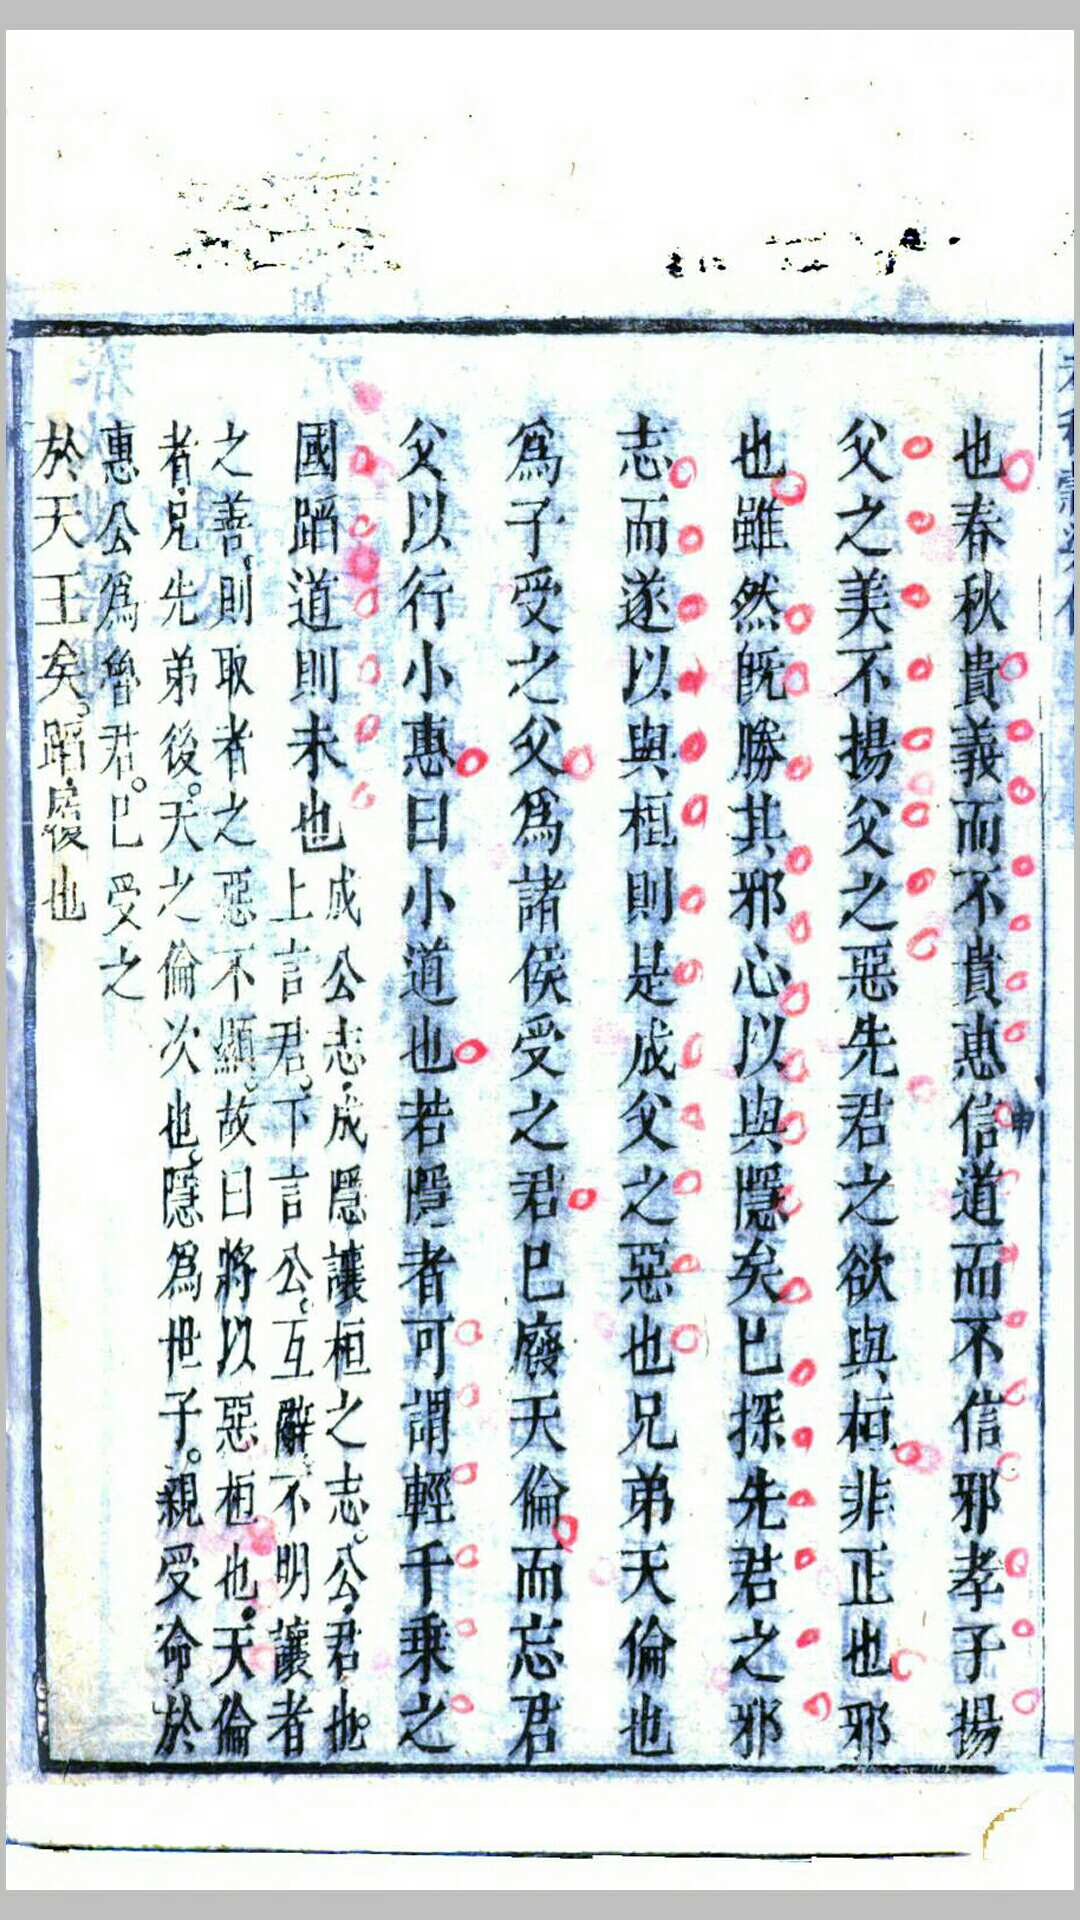 也春秋貴義而不貴惠信道而不信邪孝子揚
父之美不揚父之惡先君之欲與桓非正也邪
也雖然既勝其邪心以與隱矣已探先君之邪
志而遂以與桓則是成父之惡也兄弟天倫也
爲子受之父爲諸侯受之君已廢天倫而忘君
父以行小惠曰小道也若隱者可謂輕千乘之
國蹈道則未也
成公志成隱讓桓之志。公君也。
上言君。下言公。互辭。不明讓者
之善則取者之惡不顯。故曰將以惡桓也。天倫
者兄先弟後。天之倫次也。隱爲世子。親受命於
惠公爲魯君。已受之
於天王矣。蹈履也